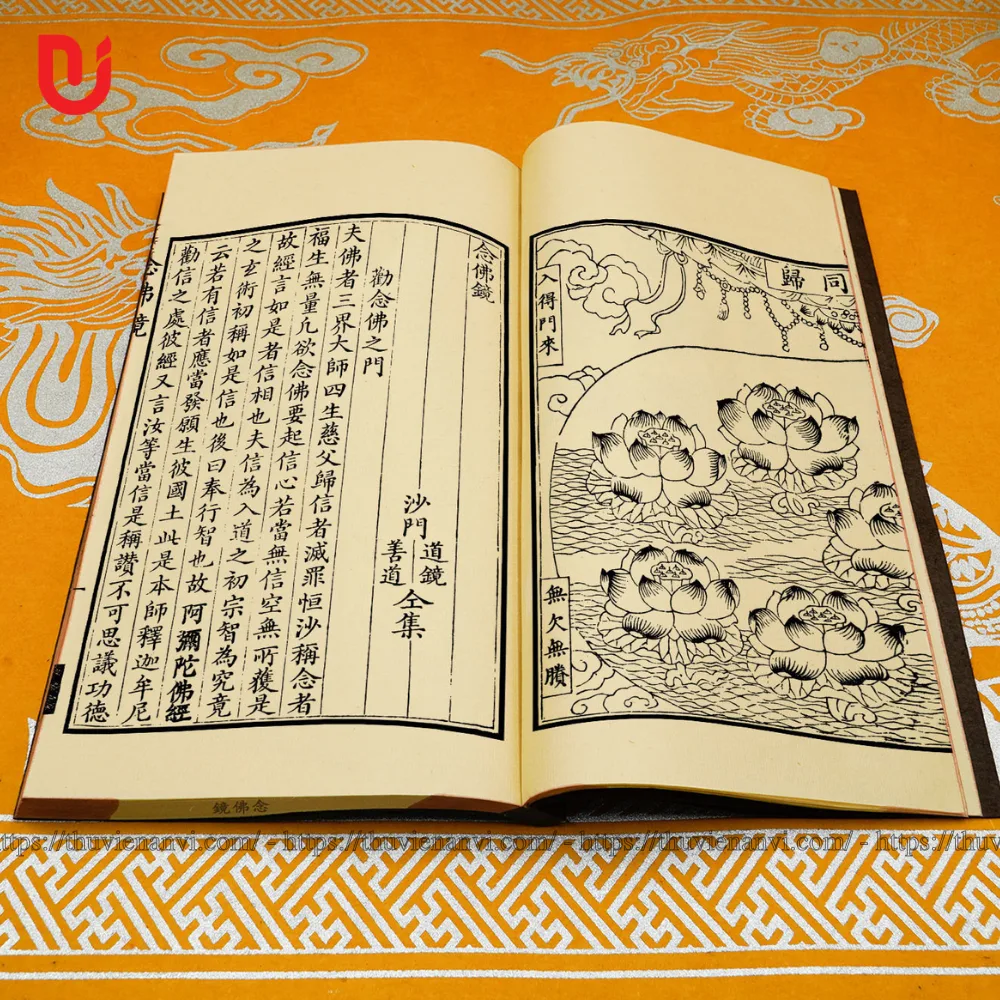 同歸
入得門來
無欠無賸
念佛鏡
沙門道鏡善道仝集
勸念佛之門
夫佛者三界大師四生慈父歸信者滅罪恒沙稱念者
福生無量凡欲念佛要起信心若當無信空無所獲是
故經言如是者信相也夫信為入道之初宗智為究竟
之玄術初稱如是信也後曰奉行智也故阿彌陀佛經
云若有信者應當發願生彼國土此是本師釋迦牟尼
勸信之處彼經又言汝等當信是稱讚不可思議功德
念佛鏡
一
念佛鏡
https://thuvienanvi.com/ - https://thuvienanvi.com/ - https://thuvienanvi.com/ - https://thuv